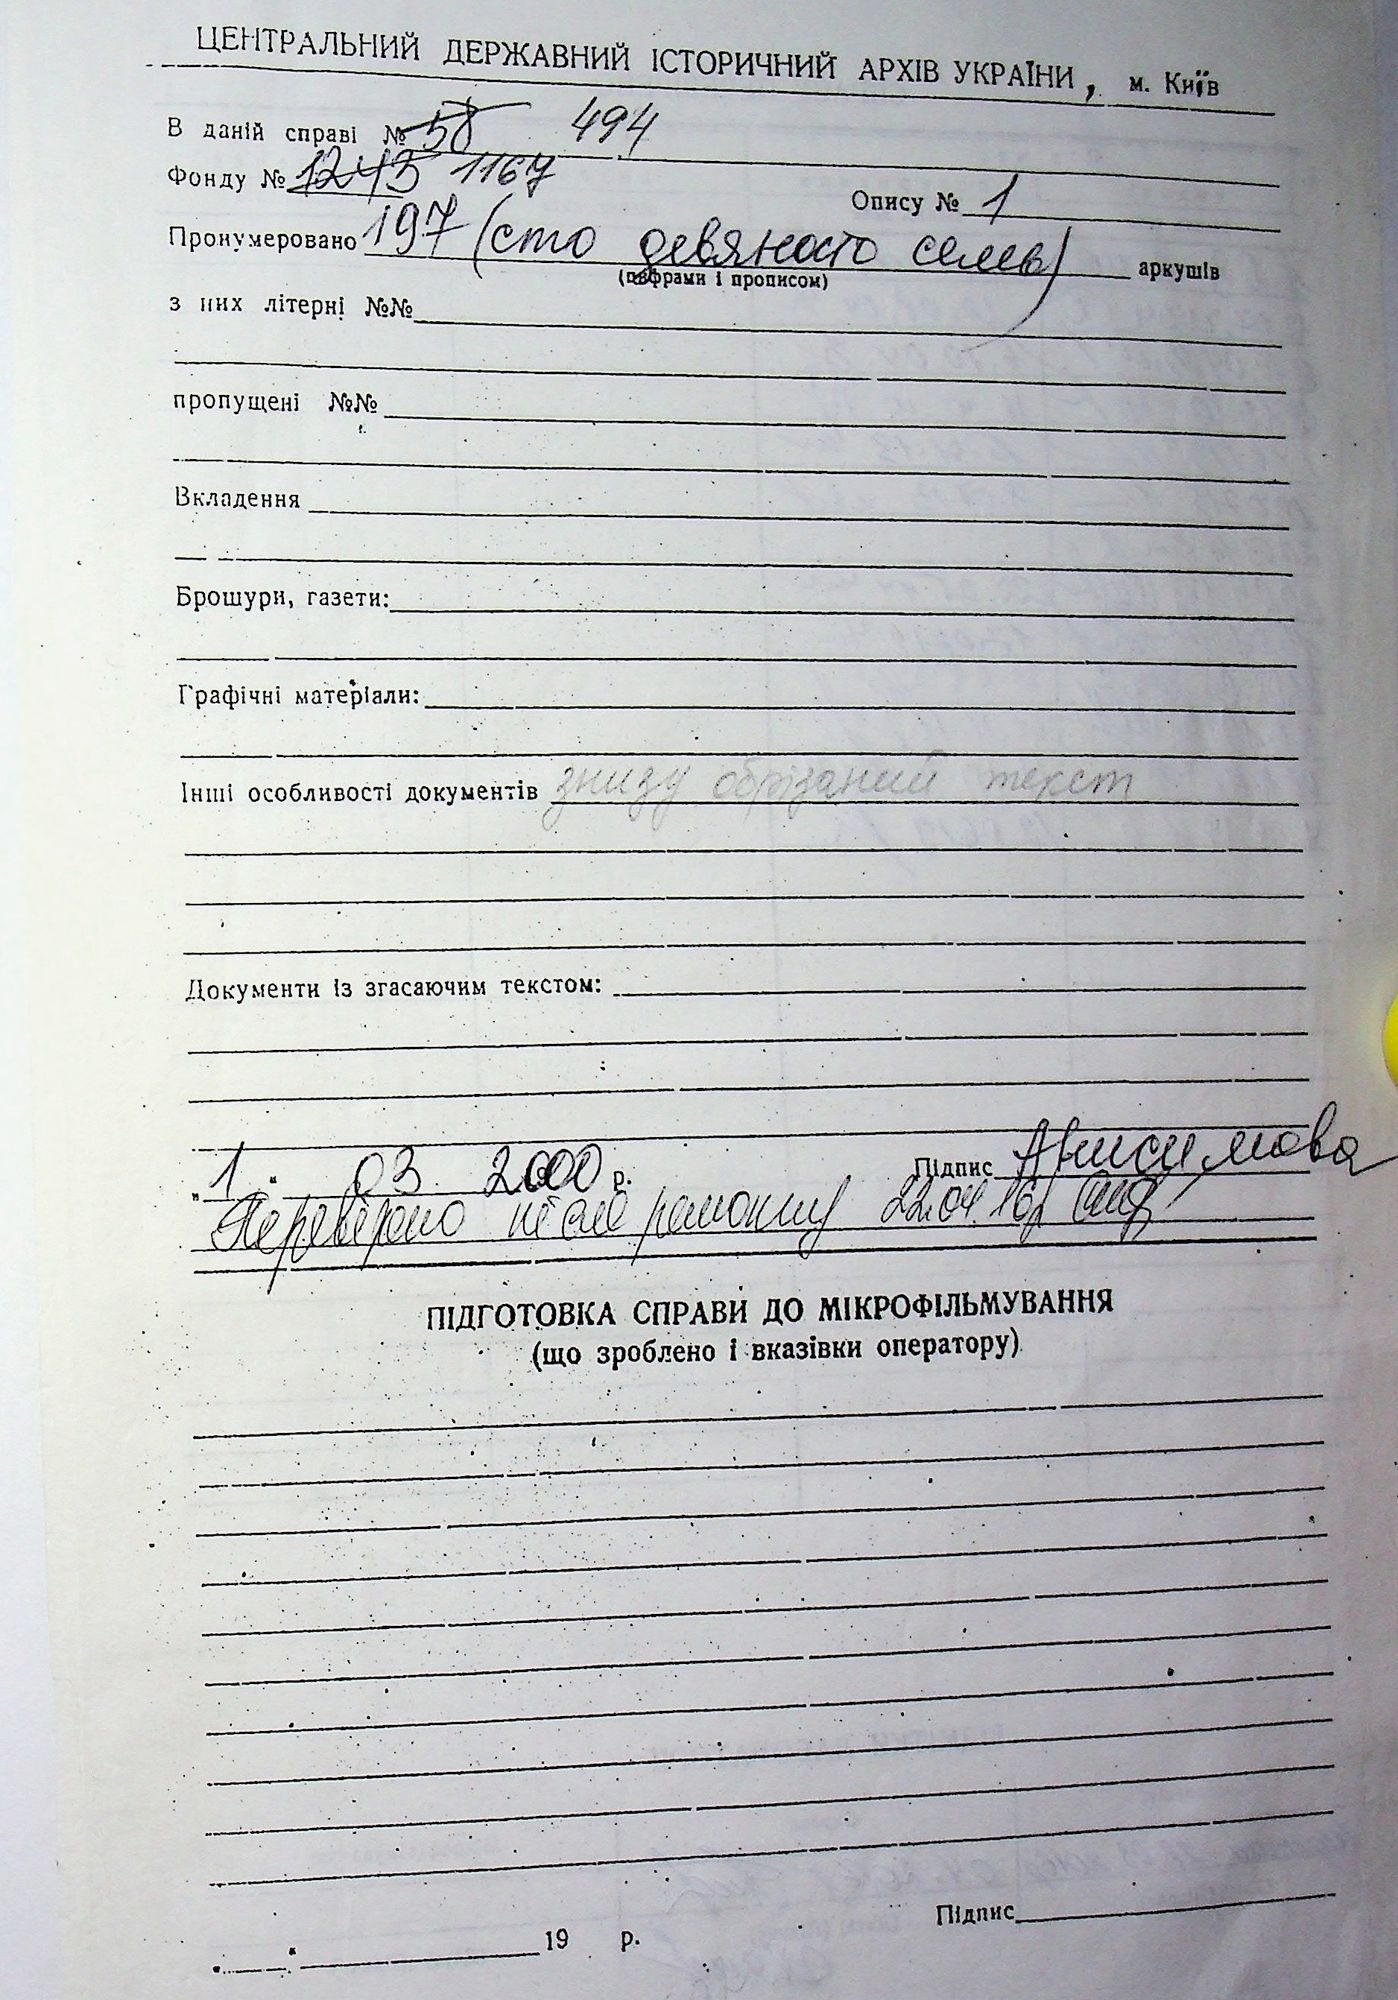 ЦЕНТРАЛЬНИЙ ДЕРЖАВНИЙ ІСТОРИЧНИЙ АРХІВ УКРАЇНИ, м. Київ
В даній справі № 58 494
Фонду № 1243 1167
Опису № 1
Пронумеровано 197 (сто девяносто семь) аркушів
(цифрами і прописом)
з них літерні №№
пропущені №№
Вкладення
Брошури, газети:
Графічні матеріали:
Інші особливості документів знизу обрізаний текст
Документи із згасаючим текстом:
„1" 03 2000 р. Підпис Анисимова
Перевірено після ремонту 22.04.16р
ПІДГОТОВКА СПРАВИ ДО МІКРОФІЛЬМУВАННЯ
(що зроблено і вказівки оператору)
Підпис
19 р.